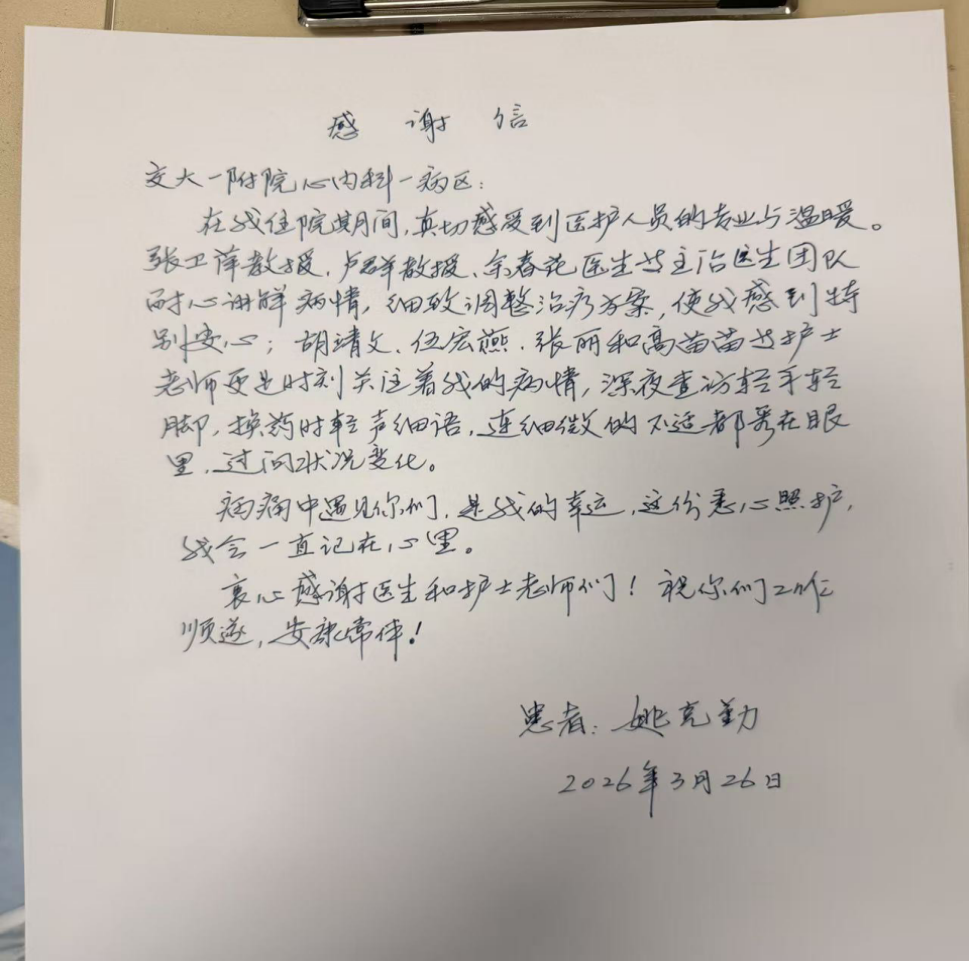 感谢信
交大一附院心内科一病区:
在我住院期间,真切感受到医护人员的专业与温暖。
张卫萍教授、卢群教授、余春花医生等主治医生团队
耐心讲解病情,细致调整治疗方案,使我感到特
别安心;胡靖文、伍宏燕、张丽和高苗苗等护士
老师更是时刻关注着我的病情,深夜查访轻手轻
脚,换药时轻声细语,连细微的不适都看在眼
里,过问状况变化。
病痛中遇见你们,是我的幸运,这份悉心照护,
我会一直记在心里。
衷心感谢医生和护士老师们!祝你们工作
顺遂,安康常伴!
患者:姚克勤
2026年3月26日